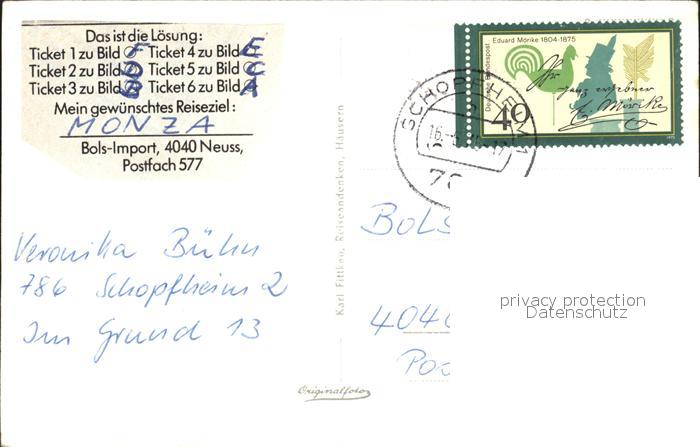 Das ist die Lösung:
Ticket 1 zu Bild F Ticket 4 zu Bild E
Ticket 2 zu Bild D Ticket 5 zu Bild C
Ticket 3 zu Bild B Ticket 6 zu Bild A
Mein gewünschtes Reiseziel:
MONZA
Bols-Import, 4040 Neuss,
Postfach 577
Veronika Bühn
786 Schopfheim 2
Im Grund 13
Karl Fittkau, Reiseandenken, Häusern
Originalfoto
Eduard Mörike 1804-1875
Deutsche Bundespost
Ihr
ganz ergebner
E. Mörike
40
SCHOPFHEIM 1
16.-6.
BOLS
4040
Pos
privacy protection
Datenschutz